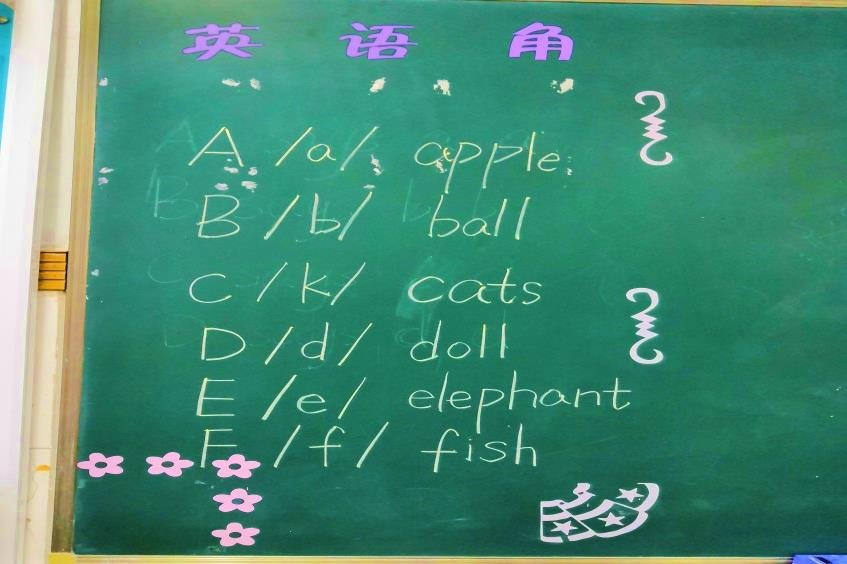 英语角
A /a/ apple
B /b/ ball
C /k/ cats
D /d/ doll
E /e/ elephant
F /f/ fish